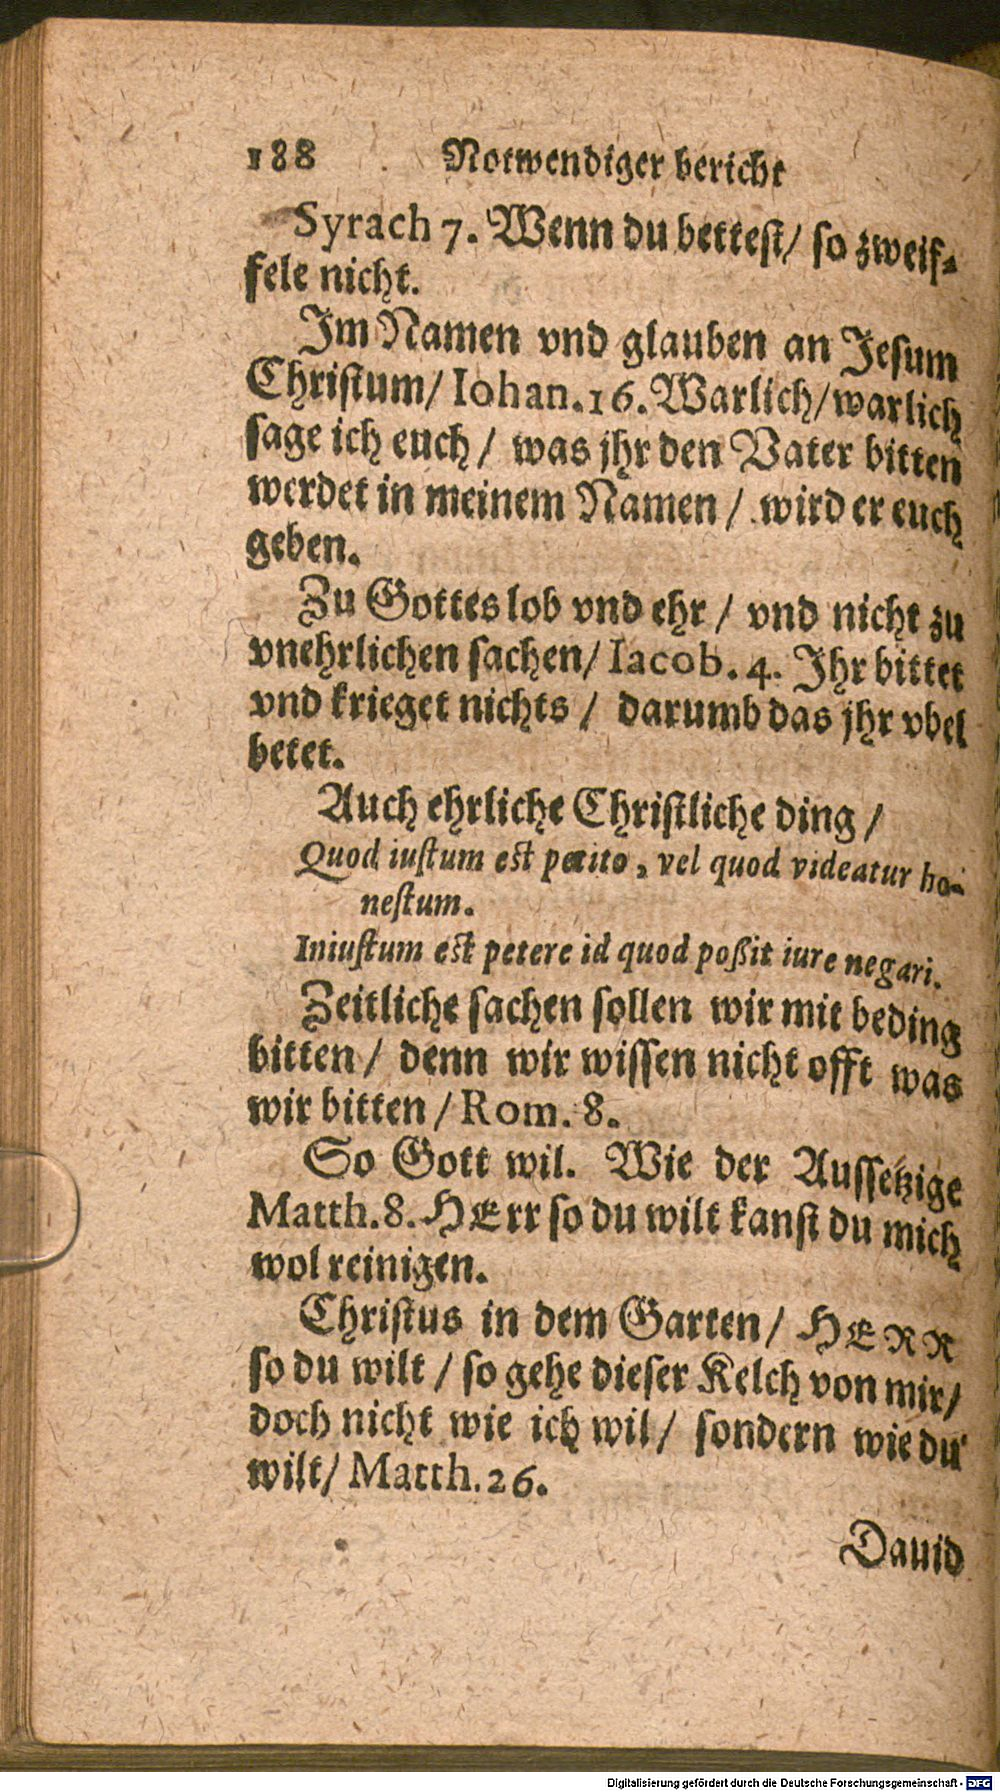 188 Notwendiger bericht
Syrach 7. Wenn du bettest/ so zweif-
fele nicht.
Im Namen vnd glauben an Jesum
Christum/ Iohan. 16. Warlich/ warlich
sage ich euch / was jhr den Vater bitten
werdet in meinem Namen / wird er euch
geben.
Zu Gottes lob vnd ehr / vnd nicht zu
vnehrlichen sachen/ Iacob. 4. Jhr bittet
vnd krieget nichts / darumb das jhr vbel
betet.
Auch ehrliche Christliche ding /
Quod iustum est petito, vel quod videatur ho-
nestum.
Iniustum est petere id quod poßit iure negari.
Zeitliche sachen sollen wir mit beding
bitten / denn wir wissen nicht offt was
wir bitten / Rom. 8.
So Gott wil. Wie der Aussetzige
Matth. 8. HErr so du wilt kanst du mich
wol reinigen.
Christus in dem Garten / HERR
so du wilt / so gehe dieser Kelch von mir/
doch nicht wie ich wil / sondern wie du
wilt/ Matth. 26.
Dauid
Digitalisierung gefördert durch die Deutsche Forschungsgemeinschaft - DFG